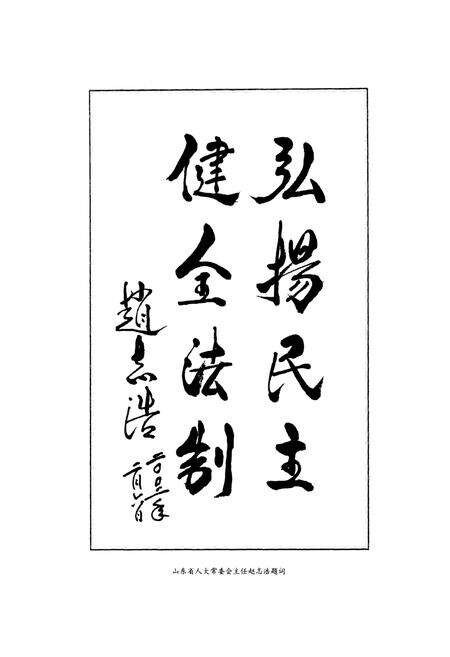 弘揚民主
健全法制
趙志浩
山东省人大常委会主任赵志浩题词